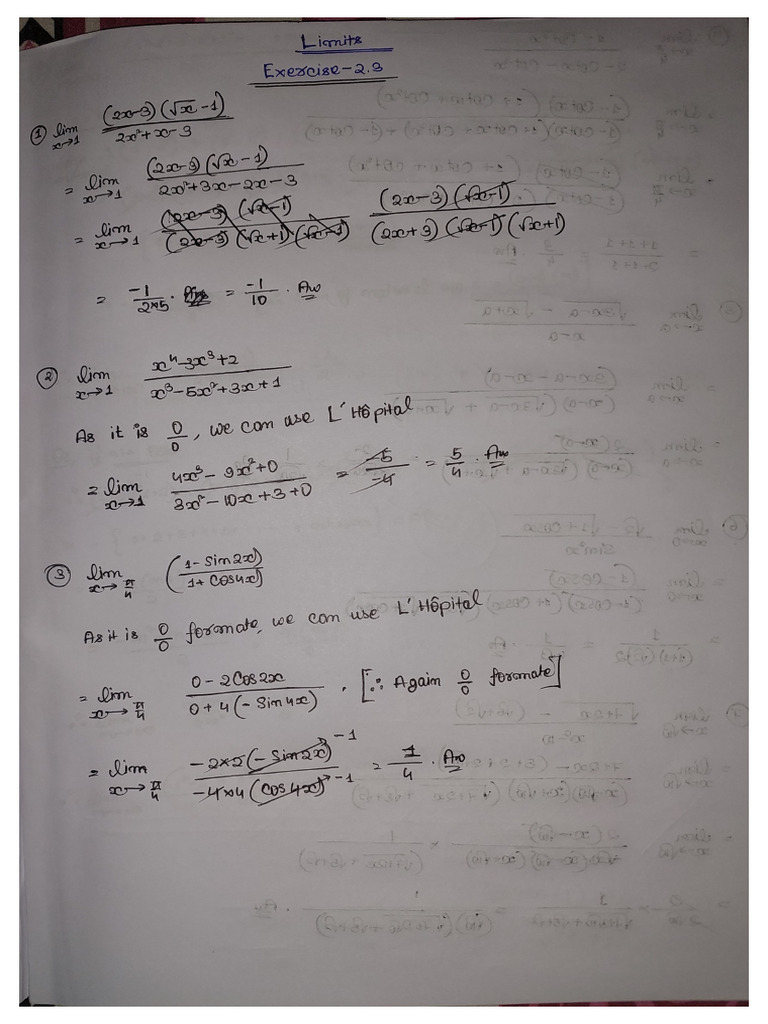 Limits
Exercise-2.3
① lim x→1 (2x-3)(√x-1) / 2x²+x-3
= lim x→1 (2x-3)(√x-1) / 2x²+3x-2x-3
= lim x→1 (2x-3)(√x-1) / (2x-3)(√x+1)(√x-1) (2x-3)(√x-1) / (2x+3)(√x-1)(√x+1)
= -1 / 2*5 . = -1/10 . Ans
② lim x→1 x⁴-3x³+2 / x³-5x²+3x+1
As it is 0/0, we can use L'Hôpital
= lim x→1 4x³-9x²+0 / 3x²-10x+3+0 = -5/-4 = 5/4 . Ans
③ lim x→π/4 (1-Sin2x / 1+Cos4x)
As it is 0/0 formate, we can use L'Hôpital
= lim x→π/4 0-2Cos2x / 0+4(-Sin4x) . [∵ Again 0/0 formate]
= lim x→π/4 -2*2(-Sin2x) -1 / -4*4(Cos4x) -1 = 1/4 . Ans